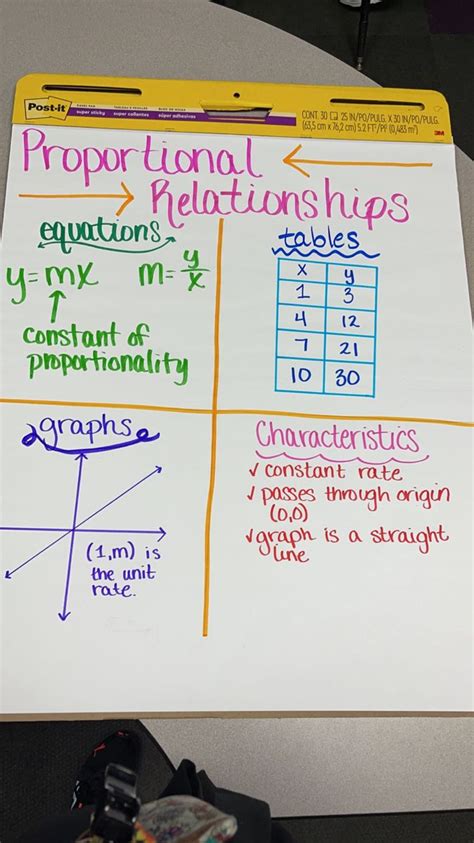 Post-it
super sticky super collantes súper adhesivas
CONT. 30 25 IN/PO/PULG. X 30 IN/PO/PULG.
(63,5 cm x 76,2 cm) 5.2 FT²/PI² (0,483 m²)
3M
Proportional
Relationships
equations
y=mx m=y/x
constant of
proportionality
tables
x y
1 3
4 12
7 21
10 30
graphs
(1,m) is
the unit
rate.
Characteristics
✓ constant rate
✓ passes through origin
(0,0)
✓ graph is a straight
line